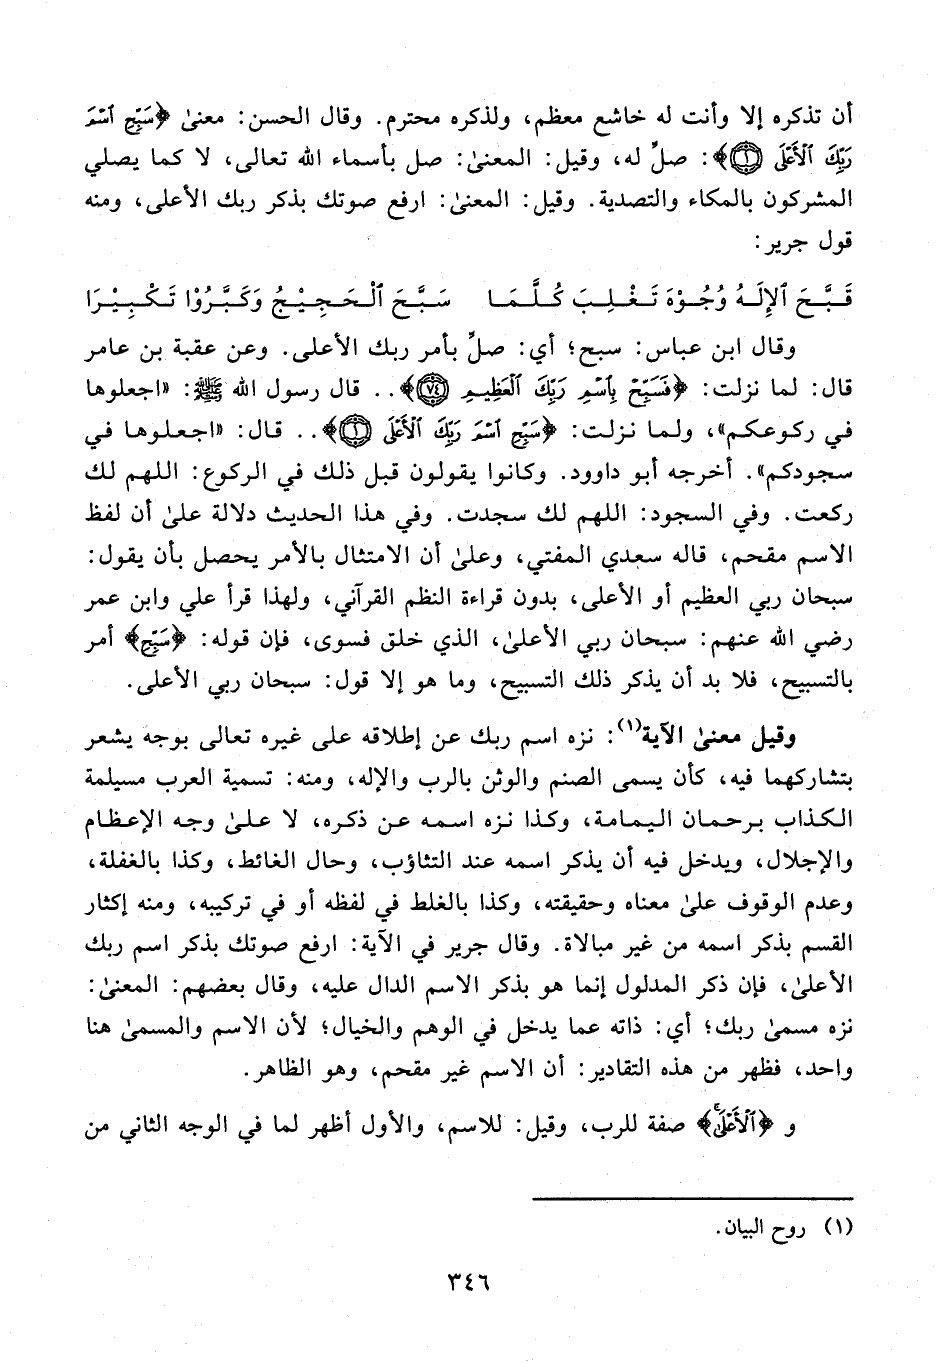 أن تذكره إلا وأنت له خاشع معظم، ولذكره محترم. وقال الحسن: معنىٰ ﴿سَبِّحِ ٱسْمَ
رَبِّكَ ٱلْأَعْلَى ۝١﴾: صلِّ له، وقيل: المعنىٰ: صل بأسماء الله تعالى، لا كما يصلي
المشركون بالمكاء والتصدية. وقيل: المعنىٰ: ارفع صوتك بذكر ربك الأعلى، ومنه
قول جرير:
قَبَّحَ ٱلإِلَهُ وُجُوْهَ تَغْلِبَ كُلَّمَا سَبَّحَ ٱلْحَجِيْجُ وَكَبَّرُوْا تَكْبِيْرَا
وقال ابن عباس: سبح؛ أي: صلِّ بأمر ربك الأعلى. وعن عقبة بن عامر
قال: لما نزلت: ﴿فَسَبِّحْ بِٱسْمِ رَبِّكَ ٱلْعَظِيمِ ۝٧٤﴾.. قال رسول الله ﷺ: «اجعلوها
في ركوعكم»، ولما نزلت: ﴿سَبِّحِ ٱسْمَ رَبِّكَ ٱلْأَعْلَى ۝١﴾.. قال: «اجعلوها في
سجودكم». أخرجه أبو داوود. وكانوا يقولون قبل ذلك في الركوع: اللهم لك
ركعت. وفي السجود: اللهم لك سجدت. وفي هذا الحديث دلالة علىٰ أن لفظ
الاسم مقحم، قاله سعدي المفتي، وعلىٰ أن الامتثال بالأمر يحصل بأن يقول:
سبحان ربي العظيم أو الأعلى، بدون قراءة النظم القرآني، ولهذا قرأ علي وابن عمر
رضي الله عنهم: سبحان ربي الأعلىٰ، الذي خلق فسوى، فإن قوله: ﴿سَبِّحِ﴾ أمر
بالتسبيح، فلا بد أن يذكر ذلك التسبيح، وما هو إلا قول: سبحان ربي الأعلى.
وقيل معنىٰ الآية(١): نزه اسم ربك عن إطلاقه على غيره تعالى بوجه يشعر
بتشاركهما فيه، كأن يسمى الصنم والوثن بالرب والإله، ومنه: تسمية العرب مسيلمة
الكذاب برحمان اليمامة، وكذا نزه اسمه عن ذكره، لا علىٰ وجه الإعظام
والإجلال، ويدخل فيه أن يذكر اسمه عند التثاؤب، وحال الغائط، وكذا بالغفلة،
وعدم الوقوف علىٰ معناه وحقيقته، وكذا بالغلط في لفظه أو في تركيبه، ومنه إكثار
القسم بذكر اسمه من غير مبالاة. وقال جرير في الآية: ارفع صوتك بذكر اسم ربك
الأعلىٰ، فإن ذكر المدلول إنما هو بذكر الاسم الدال عليه، وقال بعضهم: المعنىٰ:
نزه مسمىٰ ربك؛ أي: ذاته عما يدخل في الوهم والخيال؛ لأن الاسم والمسمىٰ هنا
واحد، فظهر من هذه التقادير: أن الاسم غير مقحم، وهو الظاهر.
و ﴿ٱلْأَعْلَىۚ﴾ صفة للرب، وقيل: للاسم، والأول أظهر لما في الوجه الثاني من
(١) روح البيان.
٣٤٦